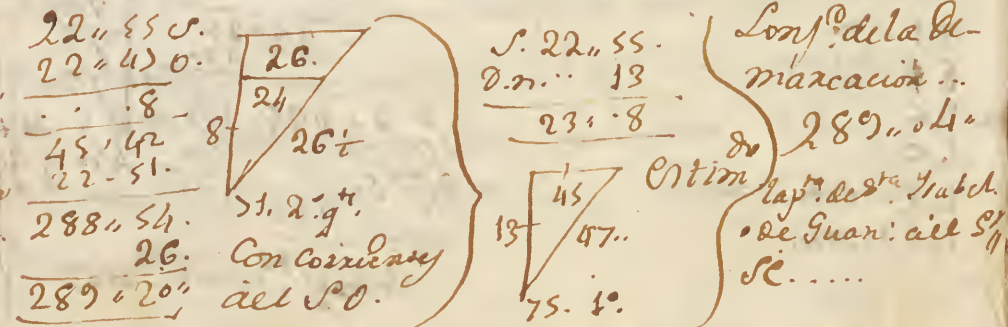 22,, 55 S.
22,, 47 O.
. . . 8
45 , 42
22 - 51.
288,, 54.
26.
289 ,, 20,,
26.
24
8
26½
71. 2º. qte.
Con corrientes
del S.O.
S. 22,, 55.
D.n. .. 13
23 , · 8
45
13
47..
75. 1º.
Estimdo
Lonj.d de la De-
marcación ...
289,, 04,,
la pta. de Sta. Ysabel
de Guan: al S
SE. . . . . .